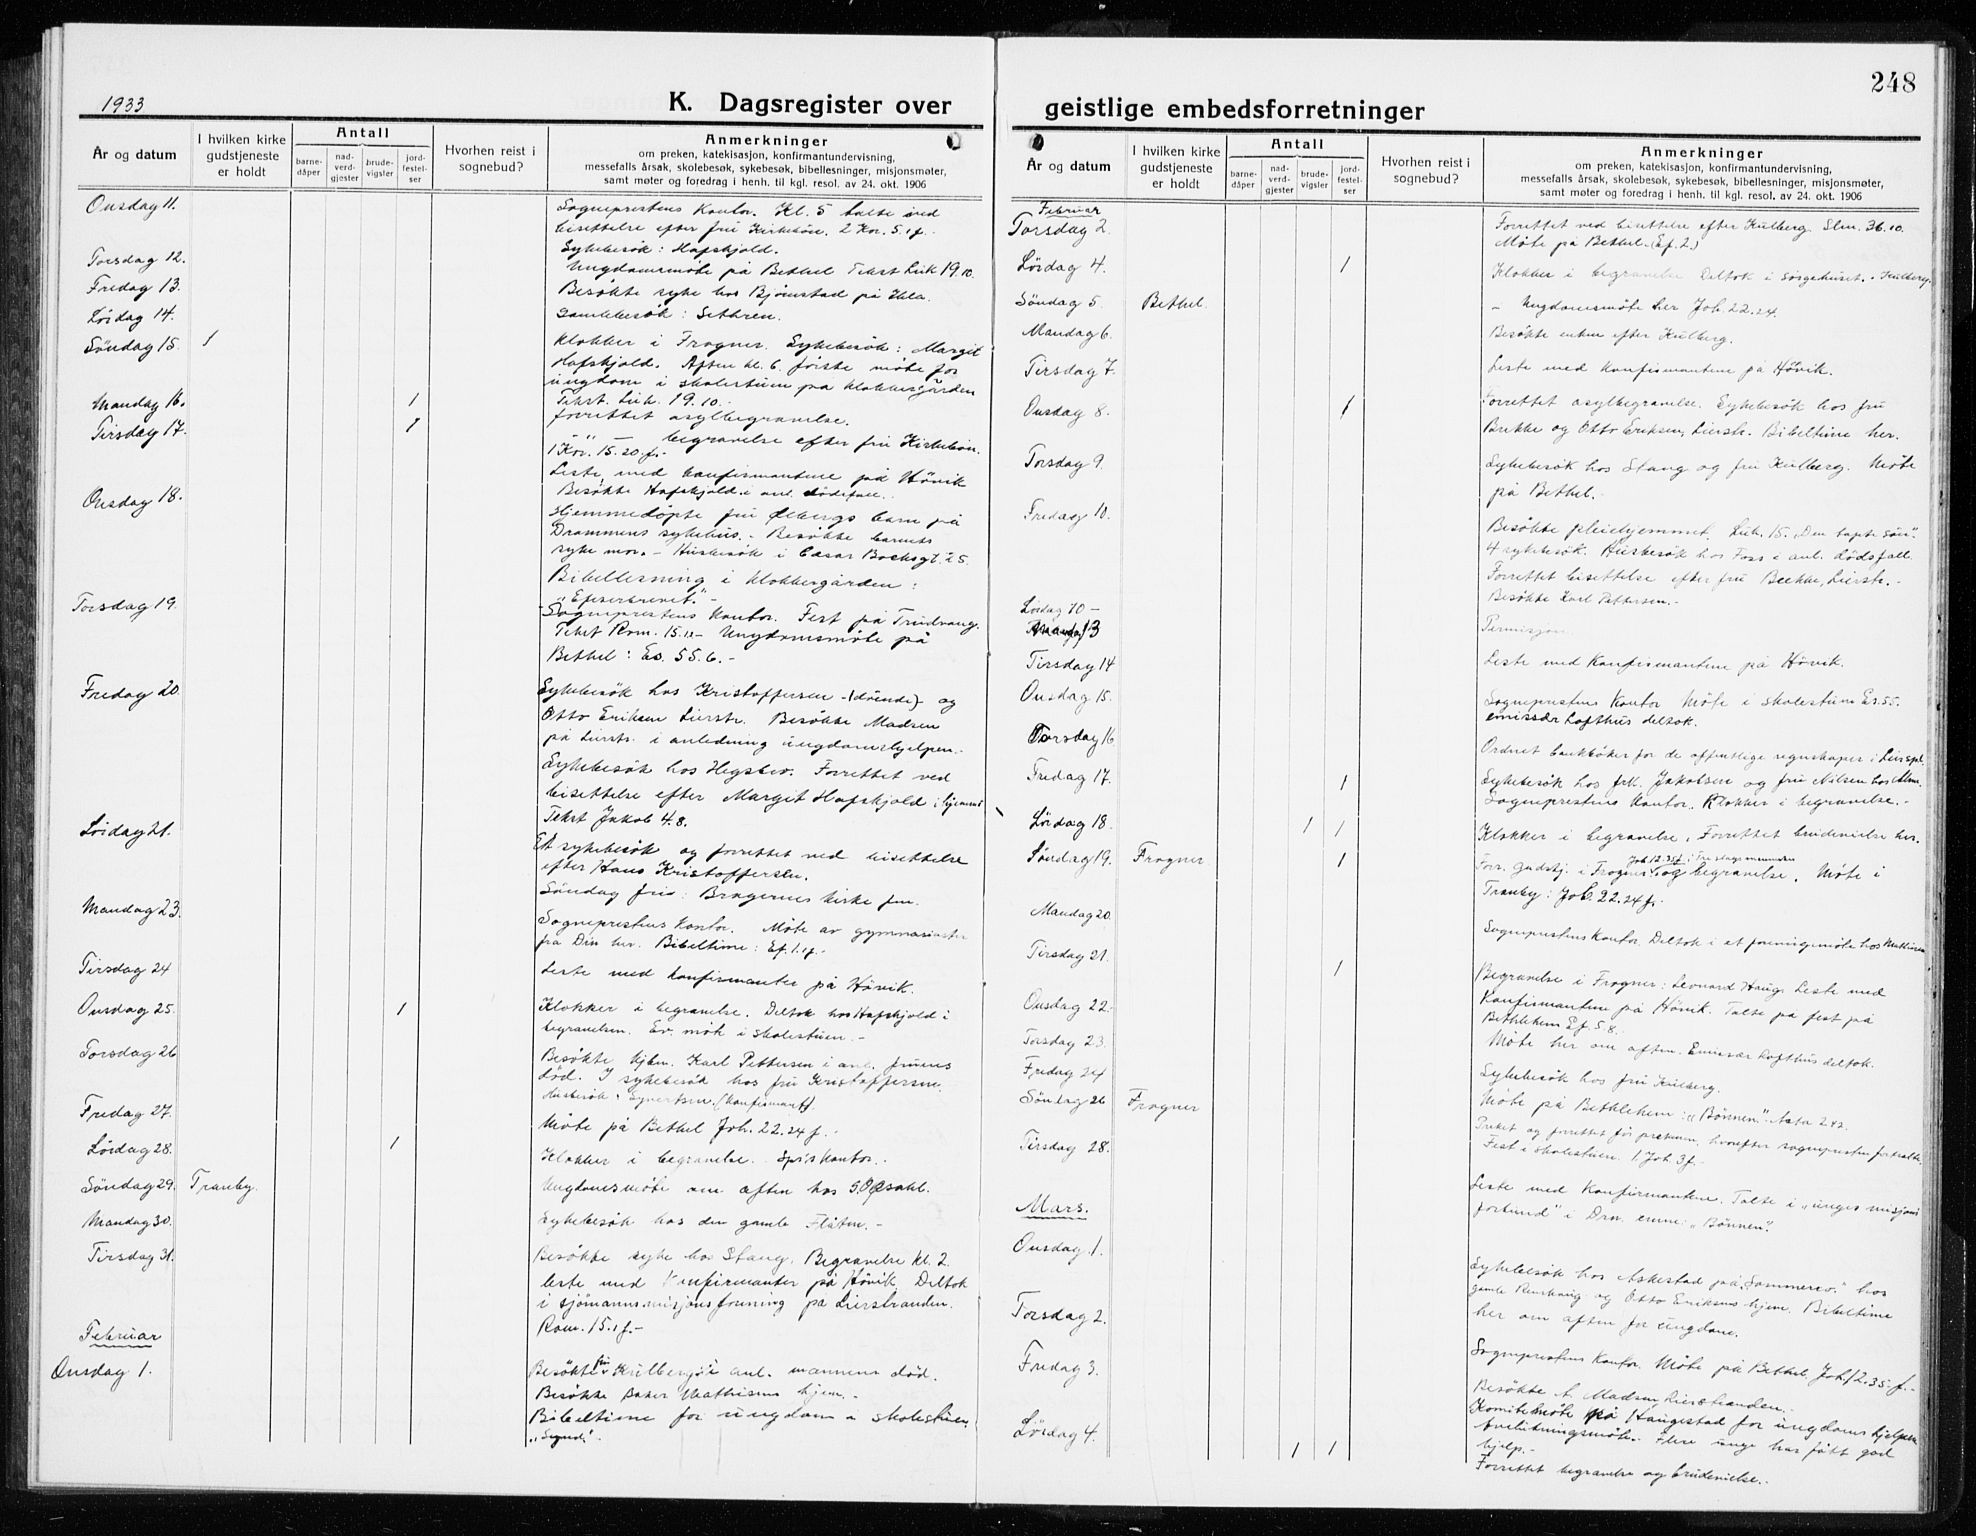 1933
K. Dagsregister over
År og datum
I hvilken kirke
gudstjeneste
er holdt
Antall
barne-
dåper
nad-
verd-
gjester
brude-
vigsler
jord-
festel-
ser
Hvorhen reist i
sognebud?
Anmerkninger
om preken, katekisasjon, konfirmantundervisning,
messefalls årsak, skolebesøk, sykebesøk, bibellesninger, misjonsmøter,
samt møter og foredrag i henh. til kgl. resol. av 24. okt. 1906
Onsdag 11.
Sogneprestens Kontor. Kl. 5 talte ved
bisettelse efter fru Kirkeböe. 2 Kor. 5.1f.
Sykebesök: Hafskjold.
Torsdag 12.
Ungdomsmöte på Bethel Tekst Luk 19.10.
Fredag 13.
Besökte syke hos Björnstad på
Lördag 14.
Samlebesök: Sethren.
Söndag 15. 1
Klokker i Frogner. Sykebesök: Margit
Hafskjold. Aften kl. 6. förste möte for
ungdom i skolestuen på klokkergården
Tekst. Luk. 19.10.-
Mandag 16. 1
forrettet asylbegravelse.
Tirsdag 17. 1
" - begravelse efter fru Kirkeböe.
1 Kor. 15.20.f.-
Leste med konfirmantene på Hövik
Besökte Hafskjold i anl. dödsfall.
Onsdag 18.
Hjemmedöpte fru Öbergs barn på
Drammens sykehus. - Besökte barnets
syke mor. - Husbesök i Cæsar Boeksgt. 25.
Bibellesning i klokkergården:
"Efeserbrevet." -
Torsdag 19.
Sogneprestens Kontor. Fest på Trudvang.
Tekst Rom. 15.13 - Ungdomsmöte på
Bethel: Es. 55.6. -
Fredag 20.
Sykebesök hos Kristoffersen - (döende) - og
Otto Eriksen Lierstr. Besökte Madsen
på Lierstr. i anledning ungdomshjelpen.-
Sykebesök hos Hegsbro. Forrettet ved
bisettelse efter Margit Hafskjold i hjemmet
Tekst Jakob 4.8.
Lördag 21.
Et sykebesök og forrettet ved bisettelse
efter Hans Kristoffersen.
Söndag fri: Bragernes kirke fm.
Mandag 23.
Sogneprestens kontor. Möte av gymnasiaster
fra Drm her. Bibeltime: Ef. 1.1f. -
Tirsdag 24
Leste med konfirmanter på Hövik.
Onsdag 25. 1
Klokker i begravelse. Deltok hos Hafskjold i
begravelsen. Ev. möte i skolestuen. -
Torsdag 26
Besökte hjem. Karl Pettersen i anl. fruens
död. I sykebesök hos fru Kristoffersen.
Husbesök: (Konfirmant).
Fredag 27.
Möte på Bethel Joh. 22.24 f. -
Lördag 28. 1
Klokker i begravelse. Spr's kontor. -
Söndag 29. Tranby.
Ungdomsmöte om aften hos S. Opsahl.
Mandag 30.
Sykebesök hos den gamle Flåten. -
Tirsdag 31.
Besökte syke hos Stang. Begravelse kl. 2.
leste med konfirmanter på Hövik. Deltok
i sjömannsmisjonsforening på Lierstranden.
Rom. 15.1 f. -
Februar
Onsdag 1.
Besökte fru Kulberg i anl. mannens död.
Besökte Baker Mathisens hjem. -
Bibeltime for ungdom i skolestuen,
"Synd".
248
geistlige embedsforretninger
År og datum
I hvilken kirke
gudstjeneste
er holdt
Antall
barne-
dåper
nad-
verd-
gjester
brude-
vigsler
jord-
festel-
ser
Hvorhen reist i
sognebud?
Anmerkninger
om preken, katekisasjon, konfirmantundervisning,
messefalls årsak, skolebesøk, sykebesøk, bibellesninger, misjonsmøter,
samt møter og foredrag i henh. til kgl. resol. av 24. okt. 1906
Februar
Torsdag 2.
Forrettet ved bisettelse efter Kulberg. Slm. 36.10.
Möte på Bethel. (Ef. 2.)
Lördag 4. 1
Klokker i begravelse Deltok i sörgehuset. - Kulberg.
Söndag 5. Bethel.
- Ungdomsmöte her Joh. 22.24.
Mandag 6.
Besökte enken efter Kulberg.
Tirsdag 7.
Leste med konfirmantene på Hövik.
Onsdag 8. 1
Forrettet asylbegravelse. Sykebesök hos fru
Brekke og Otto Eriksen, Lierstr. Bibeltime her.
Torsdag 9.
Sykebesök hos Stang og fru Kulberg. Möte
på Bethel. -
Fredag 10.
Besökte pleiehjemmet. Luk. 15. "Den tapte sön".
4 sykebesök. Husbesök hos Foss i anl. dödsfall.
Forrettet bisettelse efter fru Brekke, Lierstr. -
Besökte Karl Pettersen. -
Lördag 10 -
Mandag 13
Permisjon
Tirsdag 14
Leste med Konfirmantene på Hövik.
Onsdag 15.
Sogneprestens Kontor Möte i skolestuen Es. 55.
emissær Lofthus deltok.
Torsdag 16
Ordnet bankböker for de offentlige regnskaper i Lier spl.
Fredag 17. 1
Sykebesök hos frk. Jakobsen og fru Nilsen hos Alm.
Sogneprestens Kontor. Klokker i begravelse. -
Lördag 18. 1 1
Klokker i begravelse. Forrettet brudevielse her.
Söndag 19. Frogner 1
Joh. 12.35f. i Fredagsmannden
Forr. gudstj. i Frogner, og begravelse. Möte i
Tranby: Joh. 22.24 f.
Mandag 20.
Sogneprestens Kontor. Deltok i et foreningsmöte hos
Tirsdag 21. 1
Begravelse i Frogner: Leonard Haug. Leste med
Konfirmantene på Hövik. Talte på fest på
Bethlehem Ef. 5.8.
Onsdag 22.
Möte her om aften. Emissær Lofthus deltok.
Torsdag 23.
Sykebesök hos fru Kulberg.
Fredag 24
Möte på Bethlehem: "Bönnen". Acta 2.42.
Söndag 26 Frogner
Preket og forrettet for presten, hvorefter sognepresten fortsatte.
Fest i skolestuen. 1. Joh. 3 f. -
Tirsdag 28.
Leste med Konfirmantene. Talte i "unges misjons
forbund" i Drm. emne: "Bönnen".
Mars.
Onsdag 1.
Sykebesök hos Askestad på "Sommerro". hos
gamle Renskaug og Otto Eriksens hjem. Bibeltime
her om aften for ungdom.
Torsdag 2.
Sogneprestens Kontor. Möte på Bethel. Joh. 12.35 f. -
Fredag 3.
Besökte A. Madsen, Lierstranden. -
Komitemöte på Haugestad for ungdomshjelpen
Avslutningsmöte. Flere unge har fått god
hjelp. -
Lördag 4. 1 1
Forrettet begravelse og brudevielse. -